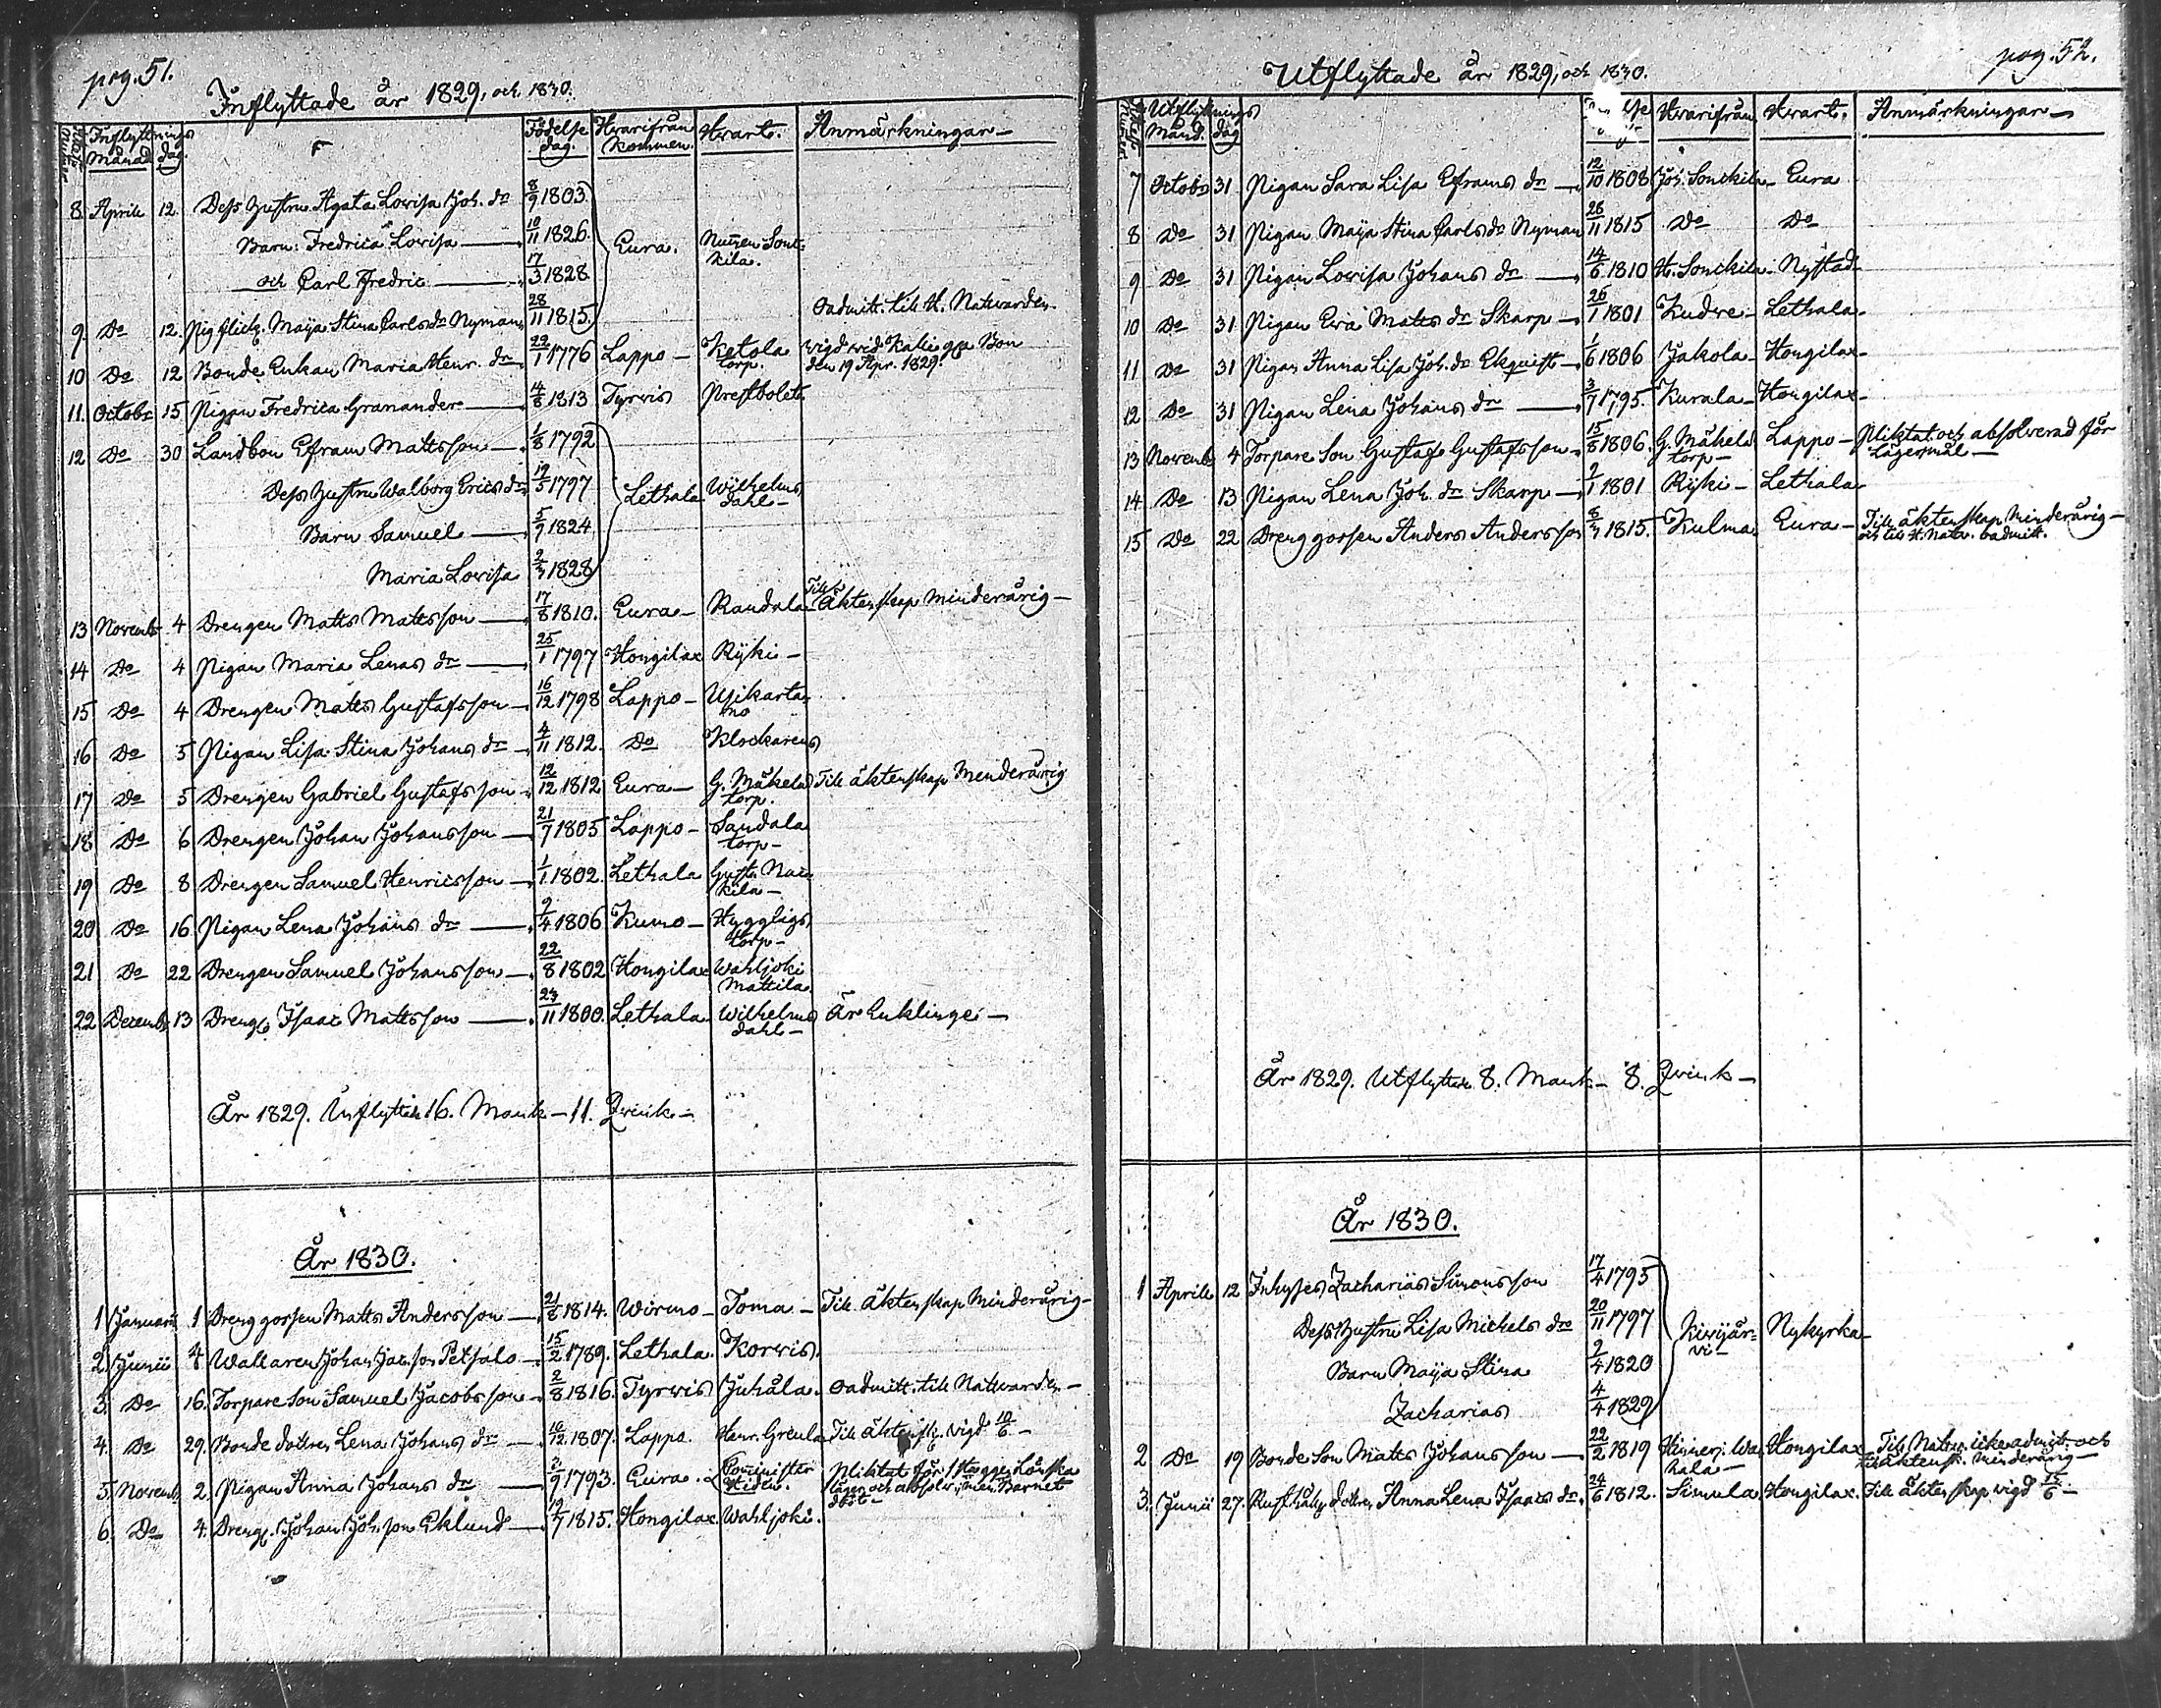 pag. 51.
Inflyttade år 1829, och 1830.
Inflyttnings Månad dag. Födelse dag. Hvarifrån kommen. Hvart. Anmärkningar
8 Aprili 12. Dess hustru Agata Lovisa Joh. dr 8/9 1803
Barn: Fredrica Lovisa 10/11 1826. Eura.
och Carl Fredric 17/3 1828
9. Do 12. Pig flick. Maija Stina Carls dr Nyman 28/11 1815. oadmitt. till H. Nattvarden
10 Do 12 Bonde Enkan Maria Henr. dr 22/1 1776 Lappo Ketola torp. vigd vid den 19 Apr. 1829.
11. Octobr 15 Pigan Fredrica Granander 4/8 1813 Tyrvis Prestbolet
12 Do 30 Landbon Efraim Mattsson 1/8 1792
Dess hustru Walborg Erics dr 19/5 1797 Lethala Wilhelms dahl
Barn Samuel 5/9 1824
Maria Lovisa 2/3 1828
13 Novembr 4 Drengen Matts Mattsson 17/8 1810. Eura Raudala Till Äktenskap minderårig
14 Do 4 Pigan Maria Lenas dr 25/1 1797 Hongilax Rijki
15 Do 4 Drengen Matts Gustafsson 16/12 1798 Lappo Uikartano
16 Do 5 Pigan Lisa Stina Johans dr 4/11 1812. Do Klockarens
17 Do 5 Drengen Gabriel Gustafsson 12/12 1812 Eura G. Mäkelä torp. Till äktenskap Menderårig
18 Do 6 Drengen Johan Johansson 21/7 1805 Lappo Sandala torp
19 Do 8 Drengen Samuel Henricsson 1/1 1802. Lethala
20 Do 16 Pigan Lena Johans dr 9/4 1806 Kumo Hyggligs torp
21 Do 22 Drengen Samuel Johansson 22/8 1802 Hongilax Wahljoki Mattila
22 Decembr 13 Dreng. Isaac Mattsson 23/11 1800. Lethala Wilhelms dahl Är Enkling
År 1829. Inflyttade 16. Mank. 11. Qvink.
År 1830.
1 Januarii 1 Dreng gossen Matts Andersson 21/8 1814. Wirmo Toma Till äktenskap Minderårig
2. Junii 8 Wallaren Johan Jac. son Petsalo 15/2 1789. Lethala. Korvis.
3. Do 16. Torpare son Samuel Jacobsson 2/8 1816. Tyrvis Juhåla. oadmitt. till Nattvarden
4. Do 29. Bonde dottren Lena Johans dr 16/12 1807. Lappo. Henr. Greula Till äktensk. vigd 10/6
5. Novembr 2. Pigan Anna Johans dr 2/9 1793. Eura. Comminister Pliktat för och absolv. men Barnet dödt
6. Do 4. Dreng. Johan Joh. son Eklund 19/7 1815. Hongilax. Wahljoki.
pag. 52.
Utflyttade år 1829, och 1830.
Utflyttnings Månd. dag Hvarifrån Hvart. Anmärkningar
7 Octobr 31 Pigan Sara Lisa Efraims dr 12/10 1808 Joh. Sonckila Eura
8 Do 31 Pigan Maija Stina Carls dr Nyman 28/11 1815 Do Do
9 Do 31 Pigan Lovisa Johans dr 14/6 1810 H. Sonckila Nystad
10 Do 31 Pigan Eva Matts dr Skarp 26/1 1801 Kudre Lethala
11 Do 31 Pigan Anna Lisa Joh. dr Ekquist 1/6 1806 Jakola Hongilax
12 Do 31 Pigan Lena Johans dr 3/7 1795. Kurala Hongilax
13 Novembr 4 Torpare Son Gustaf Gustafsson 15/8 1806. G. Mäkelä torp Lappo Pliktat och absolverad för Lägersmål
14 Do 13 Pigan Lena Joh. dr Skarp 2/1 1801 Rijki Lethala
15 Do 22 Dreng gossen Anders Andersson 8/3 1815. Kulma Eura Till äktenskap Minderårig
och till H. Natv. oadmitt.
År 1829. Utflyttade 8. Mank. 8. Qvink
År 1830.
1 Aprili 12 Inhyses Zacharias Simonsson 17/4 1795
Dess hustru Lisa Michels dr 20/11 1797 Kivijärvi Nykyrka
Barn Maija Stina 2/4 1820
Zacharias 4/4 1829
2 Do 19 Bonde Son Matts Johansson 22/2 1819 Hongilax Till Nattv. icke admitt. och till äktensk. minderårig
3. Junii 27. Rusthålls dottren Anna Lena Isaacs dr 24/6 1812. Simula Hongilax. Till äktenskap vigd 15/6